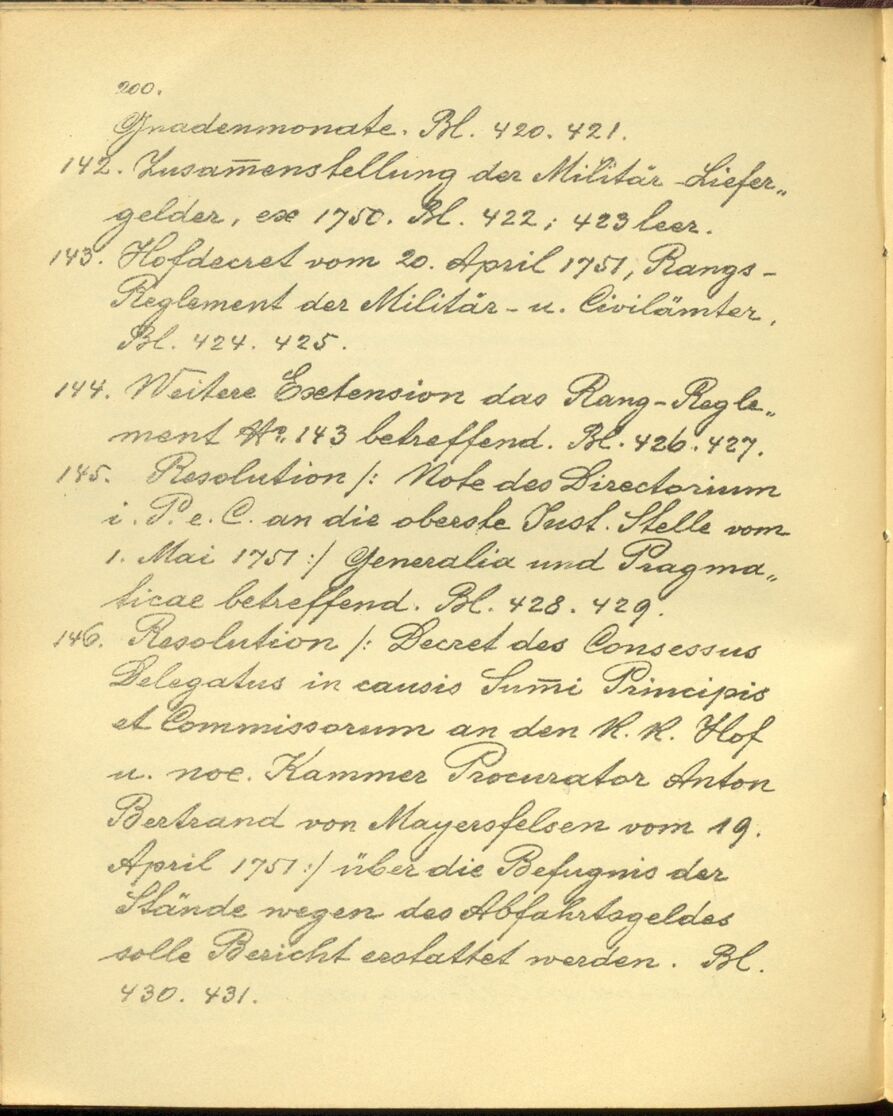 200.
Gnadenmonate. Bl. 420. 421.
142. Zusam̄enstellung der Militär-Liefer„
gelder, ex 1750. Bl. 422; 423 leer.
143. Hofdecret vom 20. April 1751, Rangs-
Reglement der Militär- u. Civilämter.
Bl. 424. 425.
144. Weitere Extension das Rang-Regle„
ment Nr. 143 betreffend. Bl. 426. 427.
145. Resolution /: Note des Directorium
i. P. e. C. an die oberste Just. Stelle vom
1. Mai 1751 :/ Generalia und Pragma„
ticae betreffend. Bl. 428. 429.
146. Resolution /: Decret des Consessus
Delegatus in causis Sum̄i Principis
et Commissorum an den K. K. Hof
u. noe. Kammer Procurator Anton
Bertrand von Mayersfelsen vom 19.
April 1751 :/ über die Befugnis der
Stände wegen des Abfahrtsgeldes
solle Bericht erstattet werden. Bl.
430. 431.